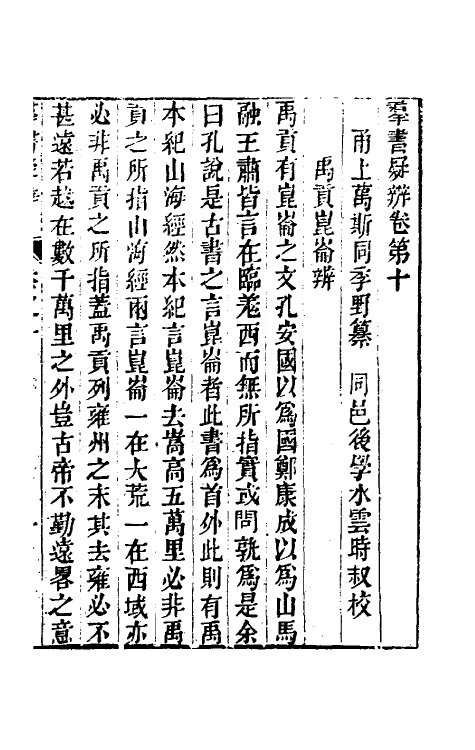 羣書疑辨卷第十
甬上萬斯同季野纂　同邑後學水雲時叔校
禹貢崑崙辨
禹貢有崑崙之文孔安國以爲國鄭康成以爲山馬
融王肅皆言在臨羗西而無所指實或問孰爲是余
曰孔說是古書之言崑崙者此書爲首外此則有禹
本紀山海經然本紀言崑崙去嵩高五萬里必非禹
貢之所指山海經兩言崑崙一在大荒一在西域亦
必非禹貢之所指葢禹貢列雍州之末其去雍必不
甚遠若越在數千萬里之外豈古帝不勤遠畧之意